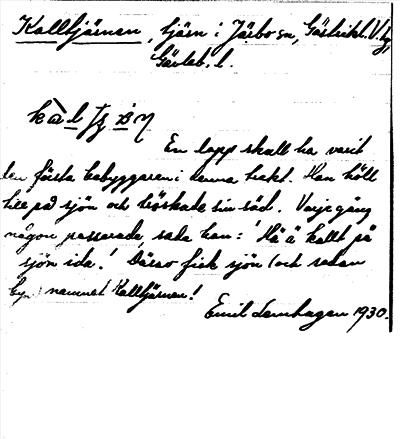 Kalltjärnen, tjärn i Järbo sn, Gästrikl. V. tg,
Gävleb. l.
En lapp skall ha varit
den första bebyggaren i denna trakt. Han höll
till på sjön och tröskade sin säd. Varje gång
någon passerade, sade han: 'Hä ä kallt på
sjön ida.' Därav fick sjön (och sedan
byn) namnet Kalltjärnen!
Emil Lennhagen 1930.